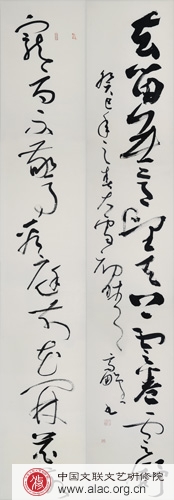 去留無意望天上雲卷雲舒
癸巳年之春大雪初
寵辱不驚看庭前花開花
中国文联文艺研修院
www.alac.org.cn